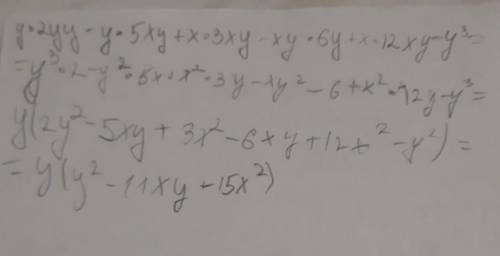 y•2yy-y•5xy+x•3xy-xy•6y+x-12xy-y³=
=y³•2-y²•5x+x²•3y-xy²-6+x²•12y-y³=
y(2y²-5xy+3x²-6xy+12x²-y²)=
=y(y²-11xy+15x²)